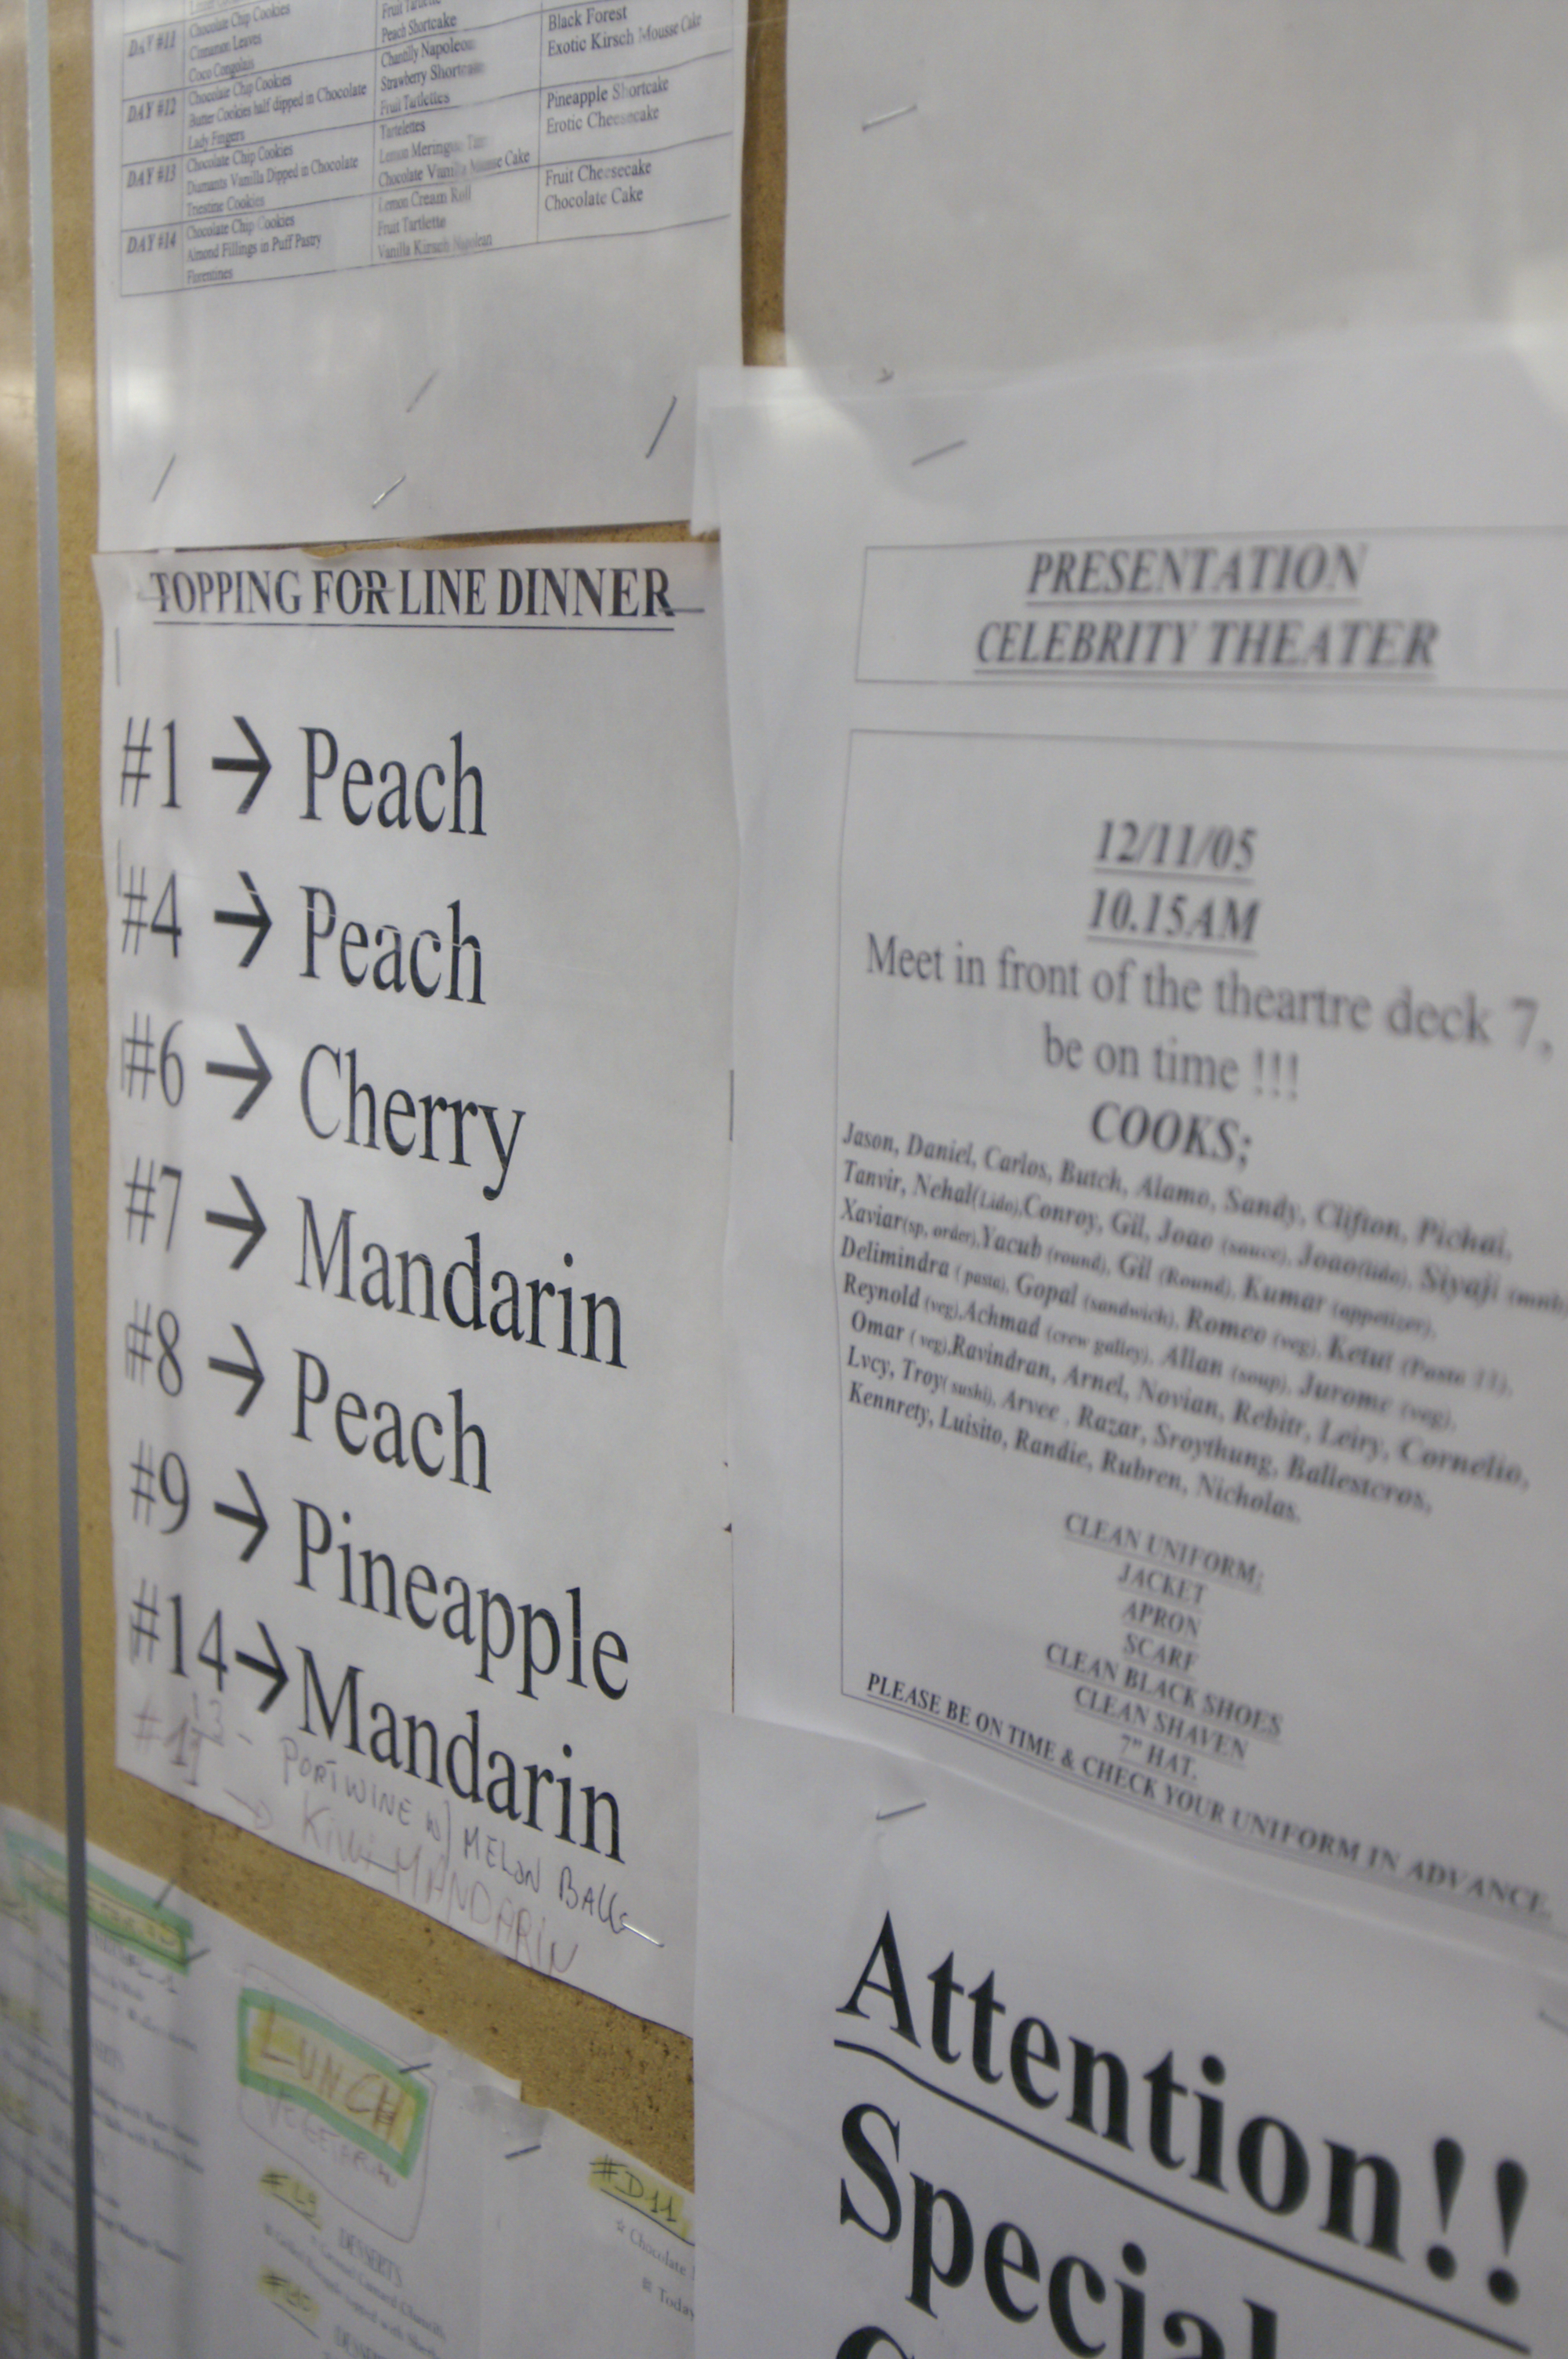 DAY #11
Chocolate Chip Cookies
Cinnamon Leaves
Coco Congolais
Peach Shortcake
Chantilly Napoleon
Black Forest
Exotic Kirsch Mousse Cake
DAY #12
Chocolate Chip Cookies
Butter Cookies half dipped in Chocolate
Lady Fingers
Strawberry Shortcake
Fruit Tartlettes
Tartelettes
Pineapple Shortcake
Erotic Cheesecake
DAY #13
Chocolate Chip Cookies
Diamants Vanilla Dipped in Chocolate
Triestine Cookies
Lemon Meringue
Chocolate Vanilla Mousse Cake
Lemon Cream Roll
Fruit Cheesecake
Chocolate Cake
DAY #14
Chocolate Chip Cookies
Almond Fillings in Puff Pastry
Florentines
Fruit Tartlette
Vanilla Kirsch Napolean
TOPPING FOR LINE DINNER
#1 → Peach
#4 → Peach
#6 → Cherry
#7 → Mandarin
#8 → Peach
#9 → Pineapple
#14→Mandarin
PORTWINE W/ MELON BALLS
→ Kiwi MANDARIN
PRESENTATION
CELEBRITY THEATER
12/11/05
10.15AM
Meet in front of the theartre deck 7,
be on time !!!
COOKS;
Jason, Daniel, Carlos, Butch, Alamo, Sandy, Clifton, Pichai,
Tanvir, Nehal(Lido),Conroy, Gil, Joao (sauce), Joao(lido), Siyaji
Xaviar(sp, order),Yacub (round), Gil (Round), Kumar (appetizer),
Delimindra (pasta), Gopal (sandwich), Romeo (veg), Ketut (Pasta 11),
Reynold (veg),Achmad (crew galley), Allan (soup), Jurome (veg),
Omar (veg),Ravindran, Arnel, Novian, Rebitr, Leiry, Cornelio,
Lvcy, Troy(sushi), Arvee , Razar, Sroythung, Ballestcros,
Kennrety, Luisito, Randie, Rubren, Nicholas.
CLEAN UNIFORM;
JACKET
APRON
SCARF
CLEAN BLACK SHOES
CLEAN SHAVEN
7" HAT.
PLEASE BE ON TIME & CHECK YOUR UNIFORM IN ADVANCE.
Attention!!
Special
LUNCH
VEGETARIAN
DESSERTS
#D11
Chocolate
Today